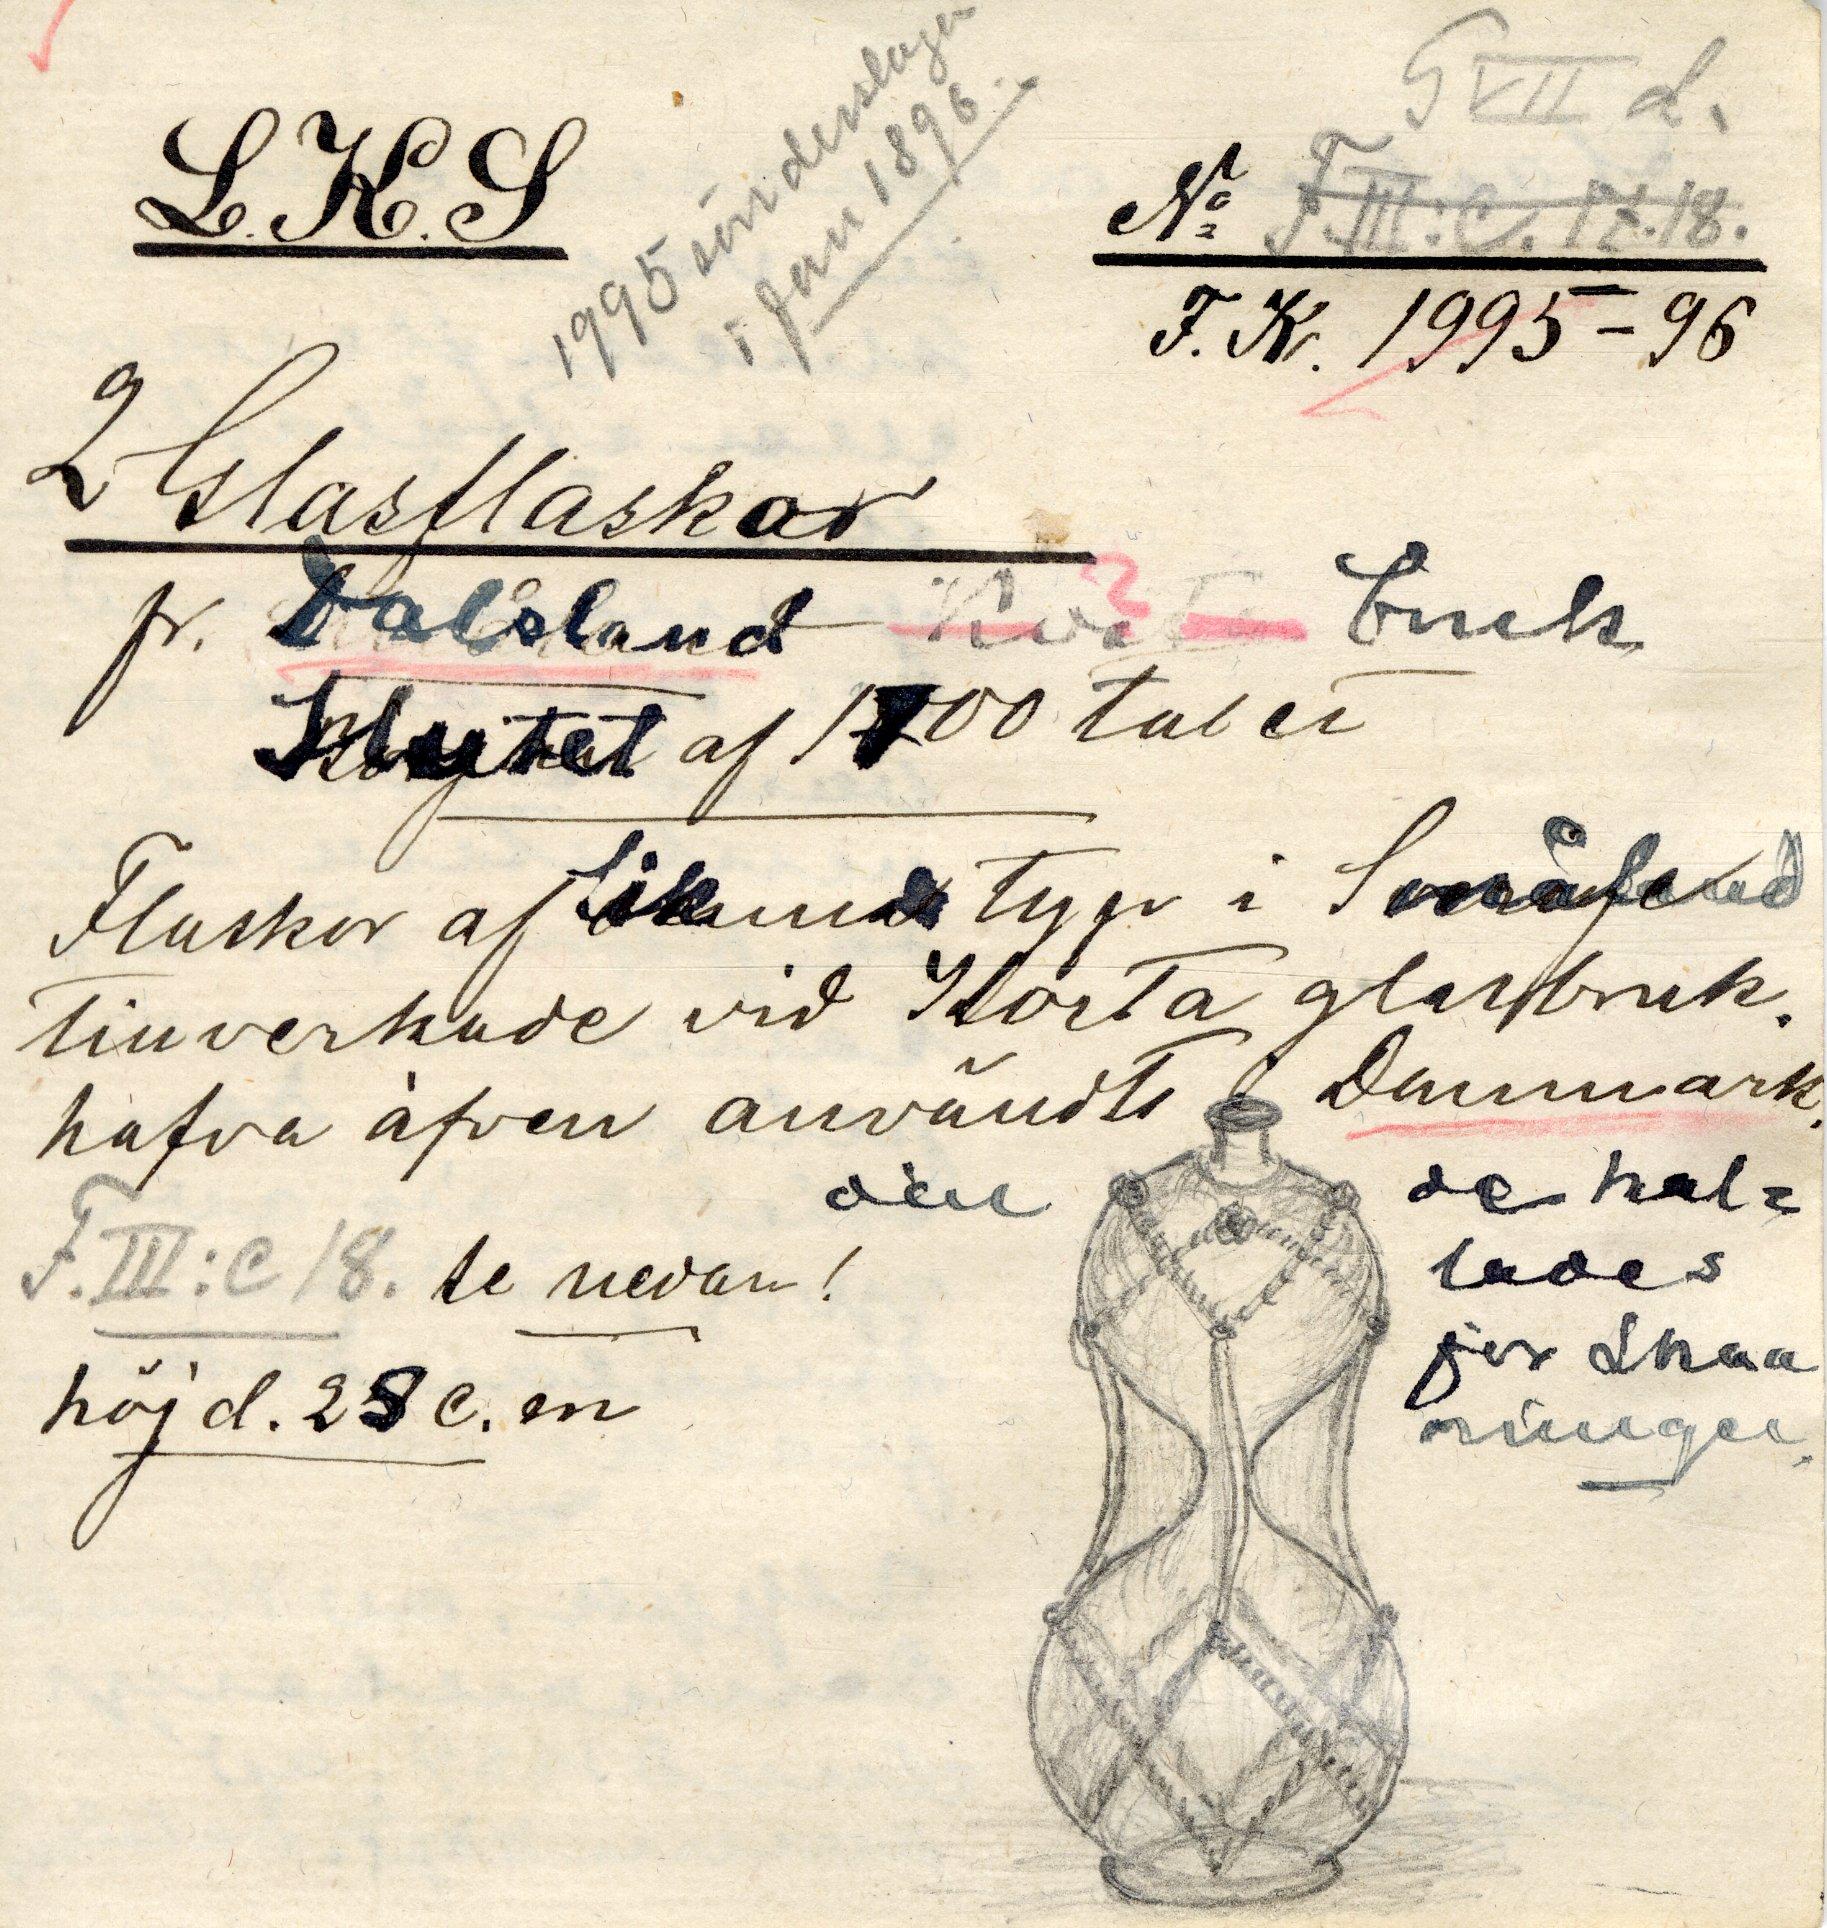 G VII d.
L.K.S
1995 sönderslagen
i Jan 1896.
No F.III:C. 17.18.
F.K. 1995-96
2 Glasflaskor
fr. Dalsland Bruk
Slutet af 1700 talet
Flaskor af liknande typ i Småland
tillverkade vid Kosta glasbruk.
hafva äfven användts i Danmark.
der de kal=
lades
for Skaa
ninger.
F.III:C 18. se nedan!
höjd. 28 c.m